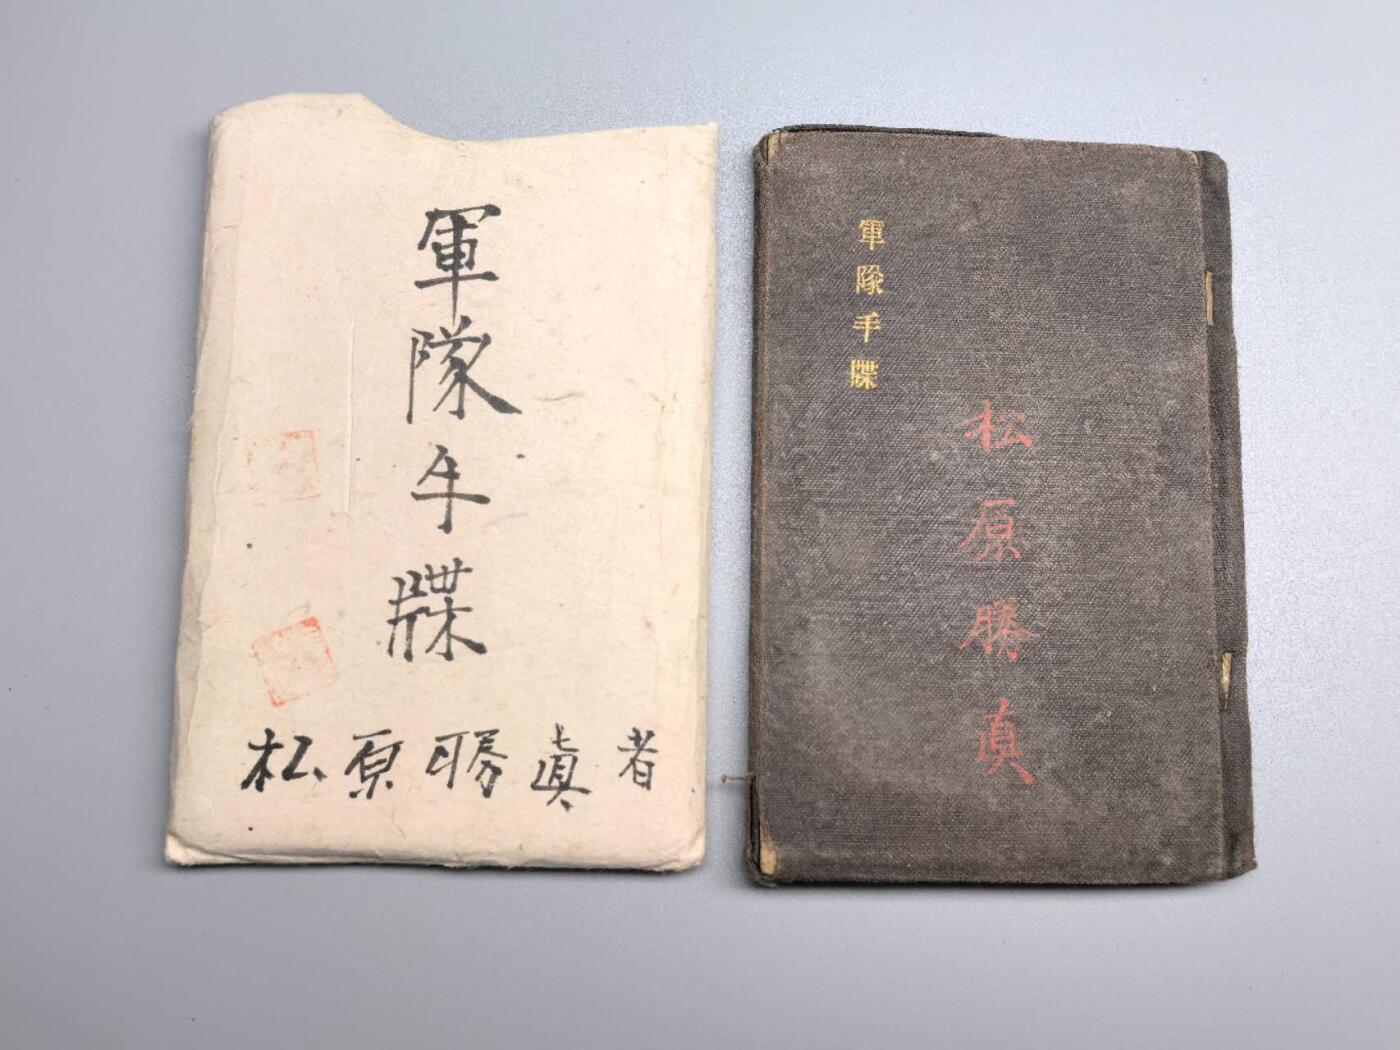 軍隊手牒
松原勝眞者
軍隊手牒
松原勝真